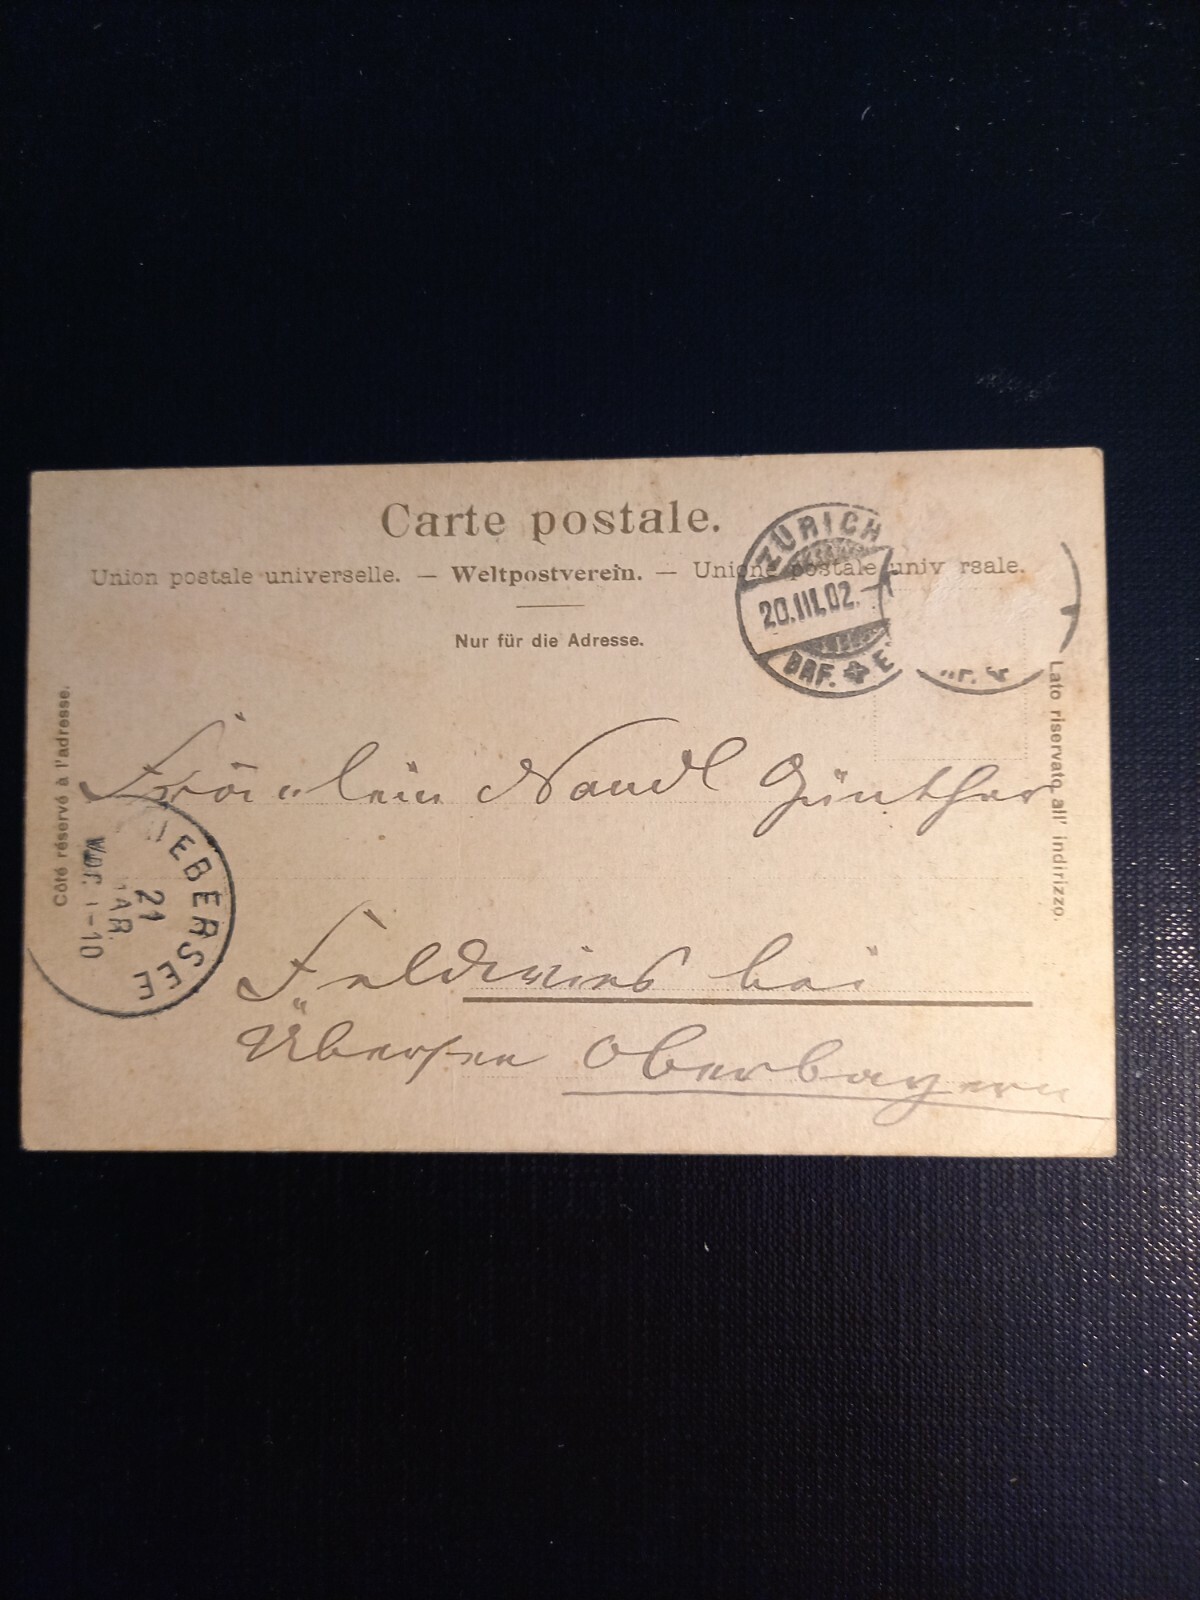 Carte postale.
Union postale universelle. — Weltpostverein. — Unione postale univ rsale.
Nur für die Adresse.
Côté réservé à l'adresse.
Lato riservato all' indirizzo.
ZÜRICH
20.III.02.
BRF. E
Fräulein Nandl Günther
Feldwies bei
Übersee Oberbayern
UEBERSEE
21
MAR.